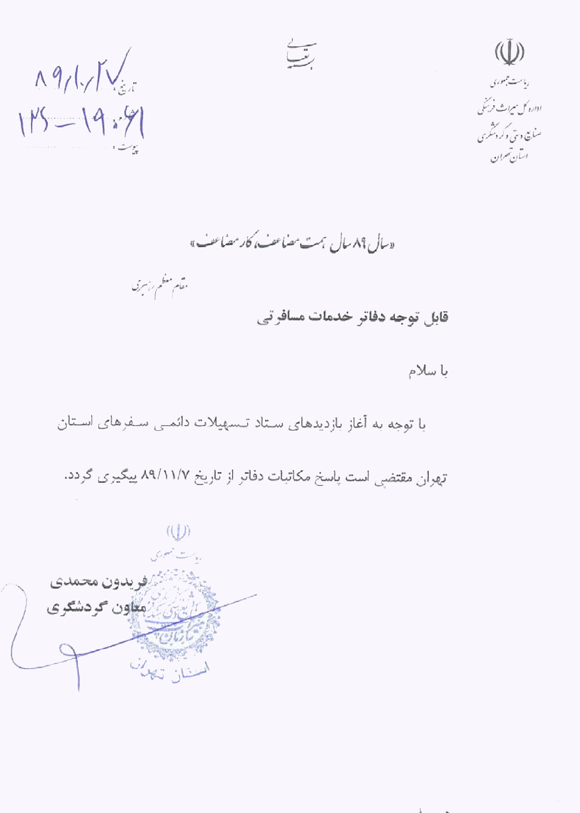 بسمه تعالی
ریاست جمهوری
اداره کل میراث فرهنگی
صنایع دستی و گردشگری
استان تهران
تاریخ: ۸۹/۱۰/۲۷
۱۲۶-۱۹۰۶۱
پیوست:
«سال ۸۹ سال همت مضاعف، کار مضاعف»
مقام معظم رهبری
قابل توجه دفاتر خدمات مسافرتی
با سلام
با توجه به آغاز بازدیدهای ستاد تسهیلات دائمی سفرهای استان
تهران مقتضی است پاسخ مکاتبات دفاتر از تاریخ ۸۹/۱۱/۷ پیگیری گردد.
فریدون محمدی
معاون گردشگری
ریاست جمهوری
استان تهران